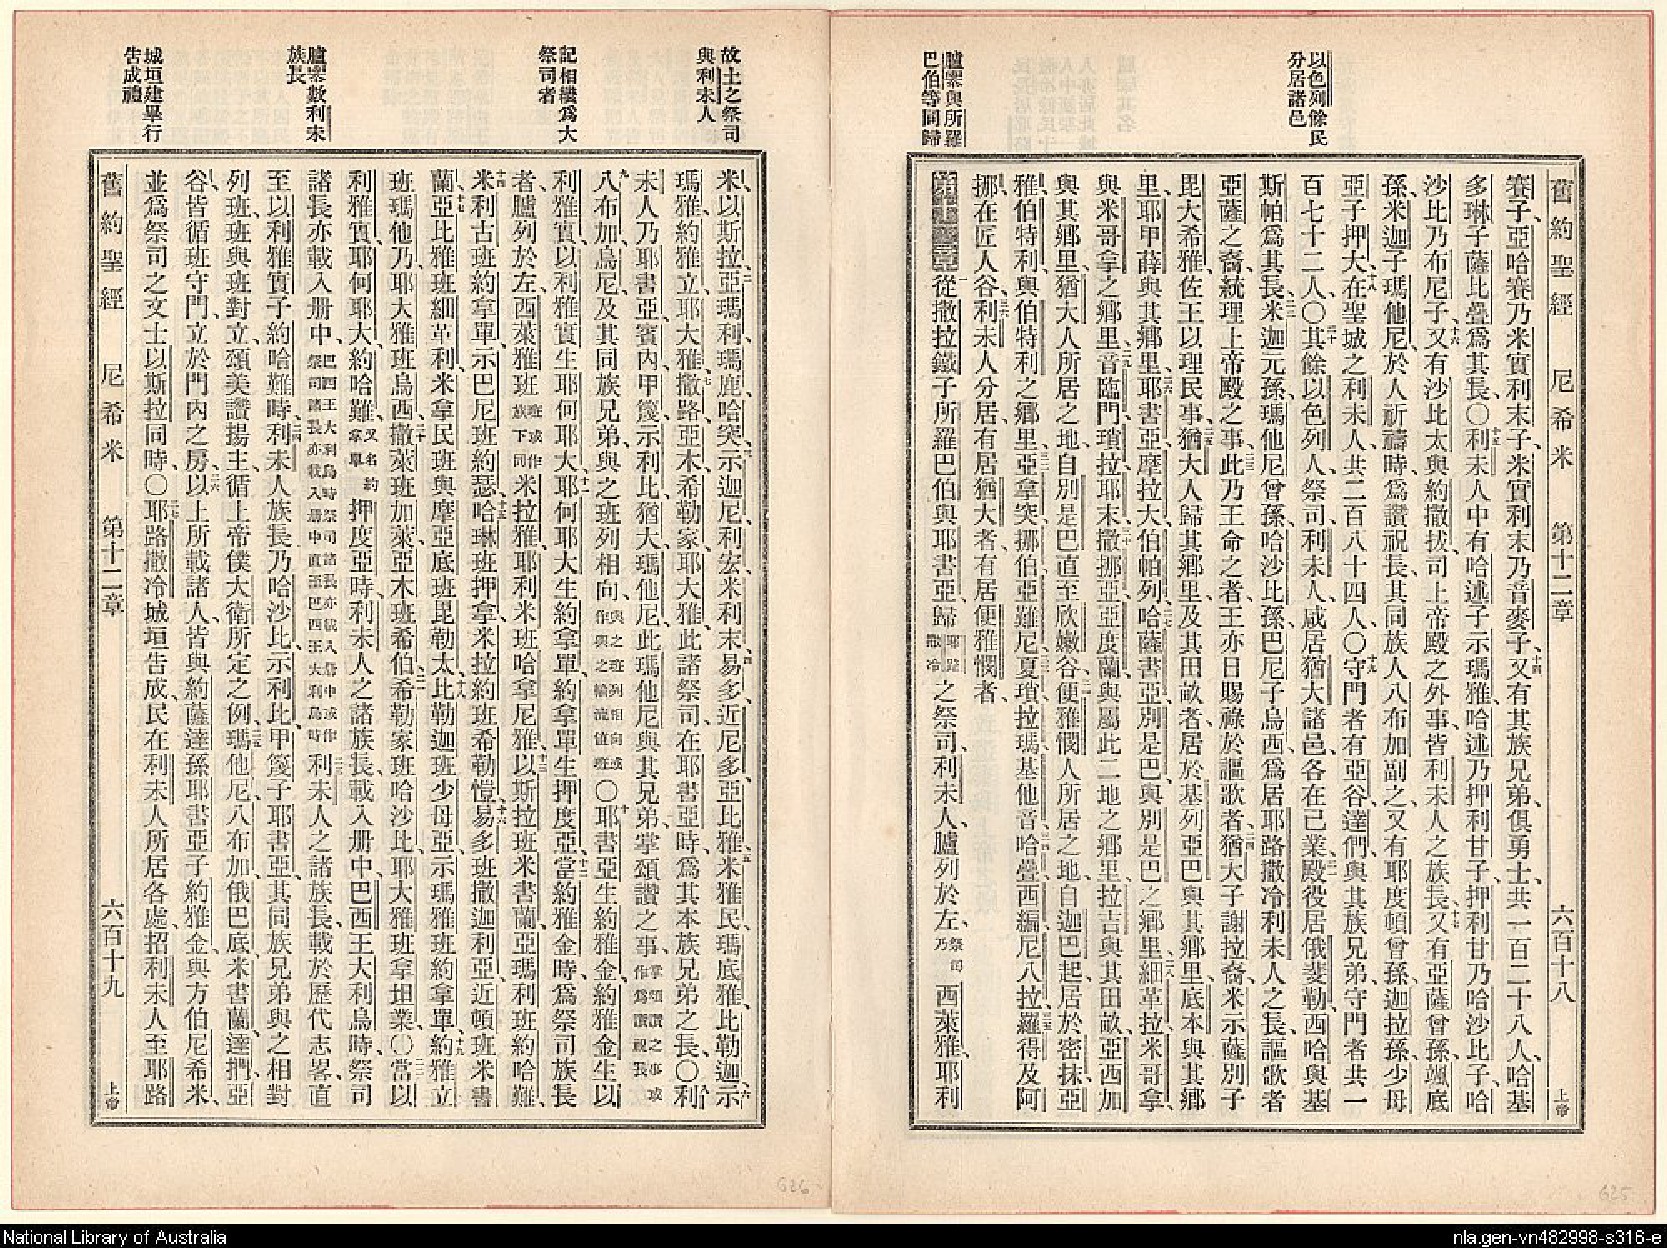 舊約聖經　尼希米　第十二章　六百十八　上帝
以色列餘民
分居諸邑
臚案與所羅
巴伯等同歸
賽子亞哈賽乃米實利末子米實利末乃音麥子十四又有其族兄弟俱勇士共一百二十八人哈基
多琳子薩比疊爲其長○十五利未人中有哈述子示瑪雅哈述乃押利甘子押利甘乃哈沙比子哈
沙比乃布尼子十六又有沙比太與約撒拔司上帝殿之外事皆利未人之族長十七又有亞薩曾孫颯底
孫米迦子瑪他尼於人祈禱時爲讚祝長其同族人八布加副之又有耶度頓曾孫迦拉孫少母
亞子押大十八在聖城之利未人共二百八十四人○十九守門者有亞谷達們與其族兄弟守門者共一
百七十二人○二十其餘以色列人祭司利未人咸居猶大諸邑各在己業二一殿役居俄斐勒西哈與基
斯帕爲其長二二米迦元孫瑪他尼曾孫哈沙比孫巴尼子烏西爲居耶路撒冷利未人之長謳歌者
亞薩之裔統理上帝殿之事二三此乃王命之者王亦日賜祿於謳歌者二四猶大子謝拉裔米示薩別子
毘大希雅佐王以理民事二五猶大人歸其鄉里及其田畝者居於基列亞巴與其鄉里底本與其鄉
里耶甲薛與其鄉里二六耶書亞摩拉大伯帕列二七哈薩書亞別是巴與別是巴之鄉里二八細革拉米哥拿
與米哥拿之鄉里二九音臨門瑣拉耶末三十撒挪亞亞度蘭與屬此二地之鄉里拉吉與其田畝亞西加
與其鄉里猶大人所居之地自別是巴直至欣嫩谷三一便雅憫人所居之地自迦巴起居於密抹亞
雅伯特利與伯特利之鄉里三二亞拿突挪伯亞難尼三三夏瑣拉瑪基他音三四哈疊西編尼八拉三五羅得及阿
挪在匠人谷三六利未人分居有居猶大者有居便雅憫者
第十二章從撒拉鐵子所羅巴伯與耶書亞歸耶路撒冷之祭司利未人臚列於左祭司乃西萊雅耶利
故土之祭司
與利未人
記相繼爲大
祭司者
臚案數利未
族長
城垣建畢行
告成禮
米以斯拉二亞瑪利瑪鹿哈突三示迦尼利宏米利末四易多近尼多亞比雅五米雅民瑪底雅比勒迦六示
瑪雅約雅立耶大雅七撒路亞木希勒家耶大雅此諸祭司在耶書亞時爲其本族兄弟之長○八利
未人乃耶書亞賓內甲篾示利比猶大瑪他尼此瑪他尼與其兄弟掌頌讚之事掌頌讚之事或作爲讚祝長
九八布加烏尼及其同族兄弟與之班列相向與之班列相向或作與之輪流值班○十耶書亞生約雅金約雅金生以
利雅實以利雅實生耶何耶大十一耶何耶大生約拿單約拿單生押度亞十二當約雅金時爲祭司族長
者臚列於左西萊雅班班或作族下同米拉雅耶利米班哈拿尼雅十三以斯拉班米書蘭亞瑪利班約哈難
十四米利古班約拿單示巴尼班約瑟十五哈琳班押拿米拉約班希勒愷十六易多班撒迦利亞近頓班米書
蘭十七亞比雅班細革利米拿民班與摩亞底班毘勒太十八比勒迦班少母亞示瑪雅班約拿單十九約雅立
班瑪他乃耶大雅班烏西二十撒萊班加萊亞木班希伯二一希勒家班哈沙比耶大雅班拿坦業○二二當以
利雅實耶何耶大約哈難又名約拿單押度亞時利未人之諸族長載入册中巴西王大利烏時祭司
諸長亦載入册中巴西王大利烏時祭司諸長亦載入册中或作祭司諸長亦載入册中直至巴西王大利烏時二三利未人之諸族長載於歷代志畧直
至以利雅實子約哈難時二四利未人族長乃哈沙比示利比甲篾子耶書亞其同族兄弟與之相對
列班班與班對立頌美讚揚主循上帝僕大衛所定之例二五瑪他尼八布加俄巴底米書蘭達捫亞
谷皆循班守門立於門內之房二六以上所載諸人皆與約薩達孫耶書亞子約雅金與方伯尼希米
並爲祭司之文士以斯拉同時○二七耶路撒冷城垣告成民在利未人所居各處招利未人至耶路
舊約聖經　尼希米　第十二章　六百十九　上帝
626
625
National Library of Australia
nla.gen-vn482998-s316-e